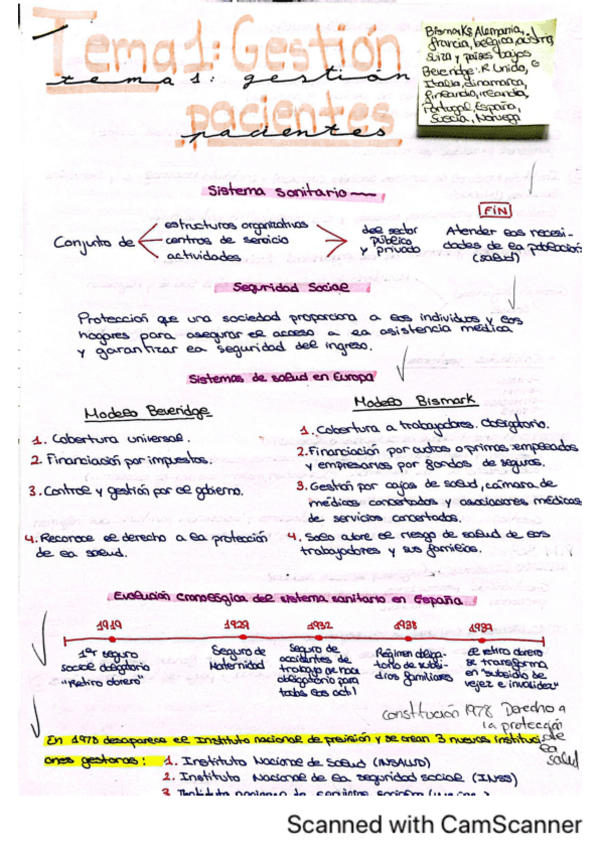 Tema 1: Gestión
tema 1: gestión
pacientes
pacientes
Bismark: Alemania,
francia, belgica, austria,
suiza y paises bajos
Beveridge: R. Unido,
Italia, dinamarca,
finlandia, irlanda,
Portugal, España,
Suecia, Noruega
Sistema sanitario
Conjunto de
estructuras organizativas
centros de servicio
actividades
del sector
público
y privado
FIN
Atender las necesi-
dades de la población
(salud)
Seguridad Social
Protección que una sociedad proporciona a los individuos y los
hogares para asegurar el acceso a la asistencia médica
y garantizar la seguridad del ingreso.
Sistemas de salud en Europa
Modelo Beveridge
1. Cobertura universal.
2. Financiación por impuestos.
3. Control y gestión por el gobierno.
4. Reconoce el derecho a la protección
de la salud.
Modelo Bismark
1. Cobertura a trabajadores. Obligatorio.
2. Financiación por cuotas o primas empleados
y empresarios por fondos de seguros.
3. Gestión por cajas de salud, cámara de
médicos concertados y asociaciones médicas
de servicios concertados.
4. Solo cubre el riesgo de salud de los
trabajadores y sus familias.
Evolución cronológica del sistema sanitario en España
1919
1er seguro
social obligatorio
"Retiro obrero"
1929
Seguro de
Maternidad
1932
Seguro de
accidentes de
trabajo se hace
obligatorio para
todas las act.
1938
Régimen obliga-
torio de subsi-
dios familiares
1939
El retiro obrero
se transforma
en "subsidio de
vejez e invalidez"
constitución 1978 Derecho a
la protección
de
la
salud
En 1978 desaparece el Instituto nacional de previsión y se crean 3 nuevas instituci
ones gestoras:
1. Instituto Nacional de Salud (INSALUD)
2. Instituto Nacional de la seguridad social (INSS)
3. Instituto nacional de servicios sociales
Scanned with CamScanner